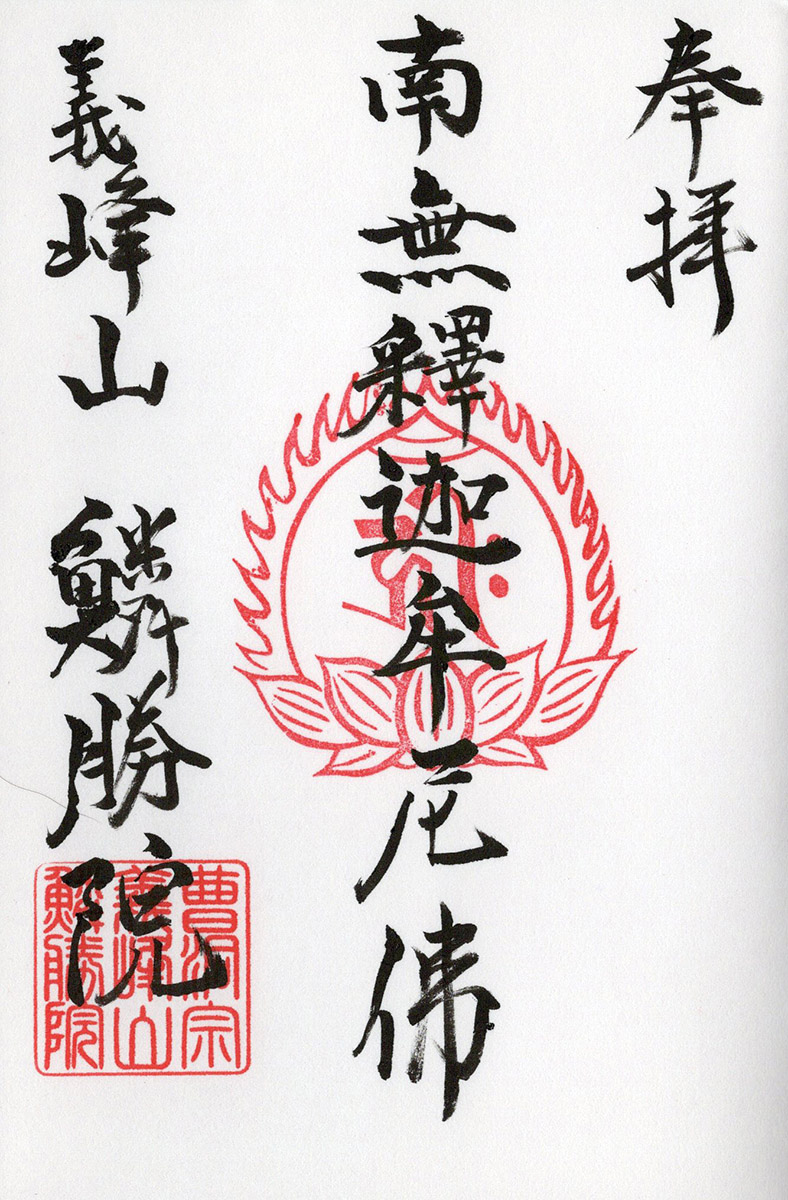 奉拝
南無釋迦牟尼佛
義峰山 鱗勝院
曹洞宗
義峰山
鱗勝院